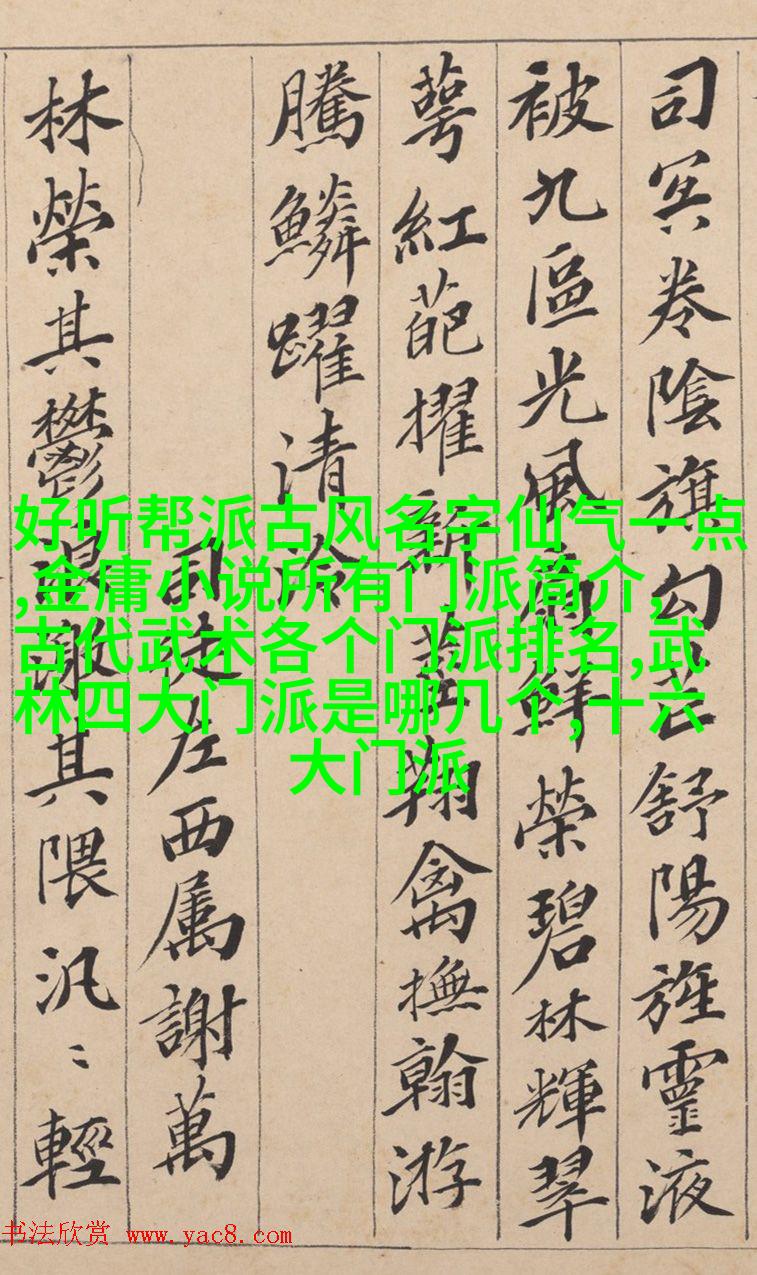 司冥卷陰旗勾芒舒陽旌靈液
被九區光風扇鮮榮碧林輝翠
萼紅葩擢新莖翔禽撫翰游
騰鱗躍清泠
司徒左西属謝萬
林榮其鬱浪激其隈汎〻輕
好听帮派古风名字仙气一点
,金庸小说所有门派简介,
古代武术各个门派排名,武
林四大门派是哪几个,十六
大门派
书法欣赏 www.yac8.com